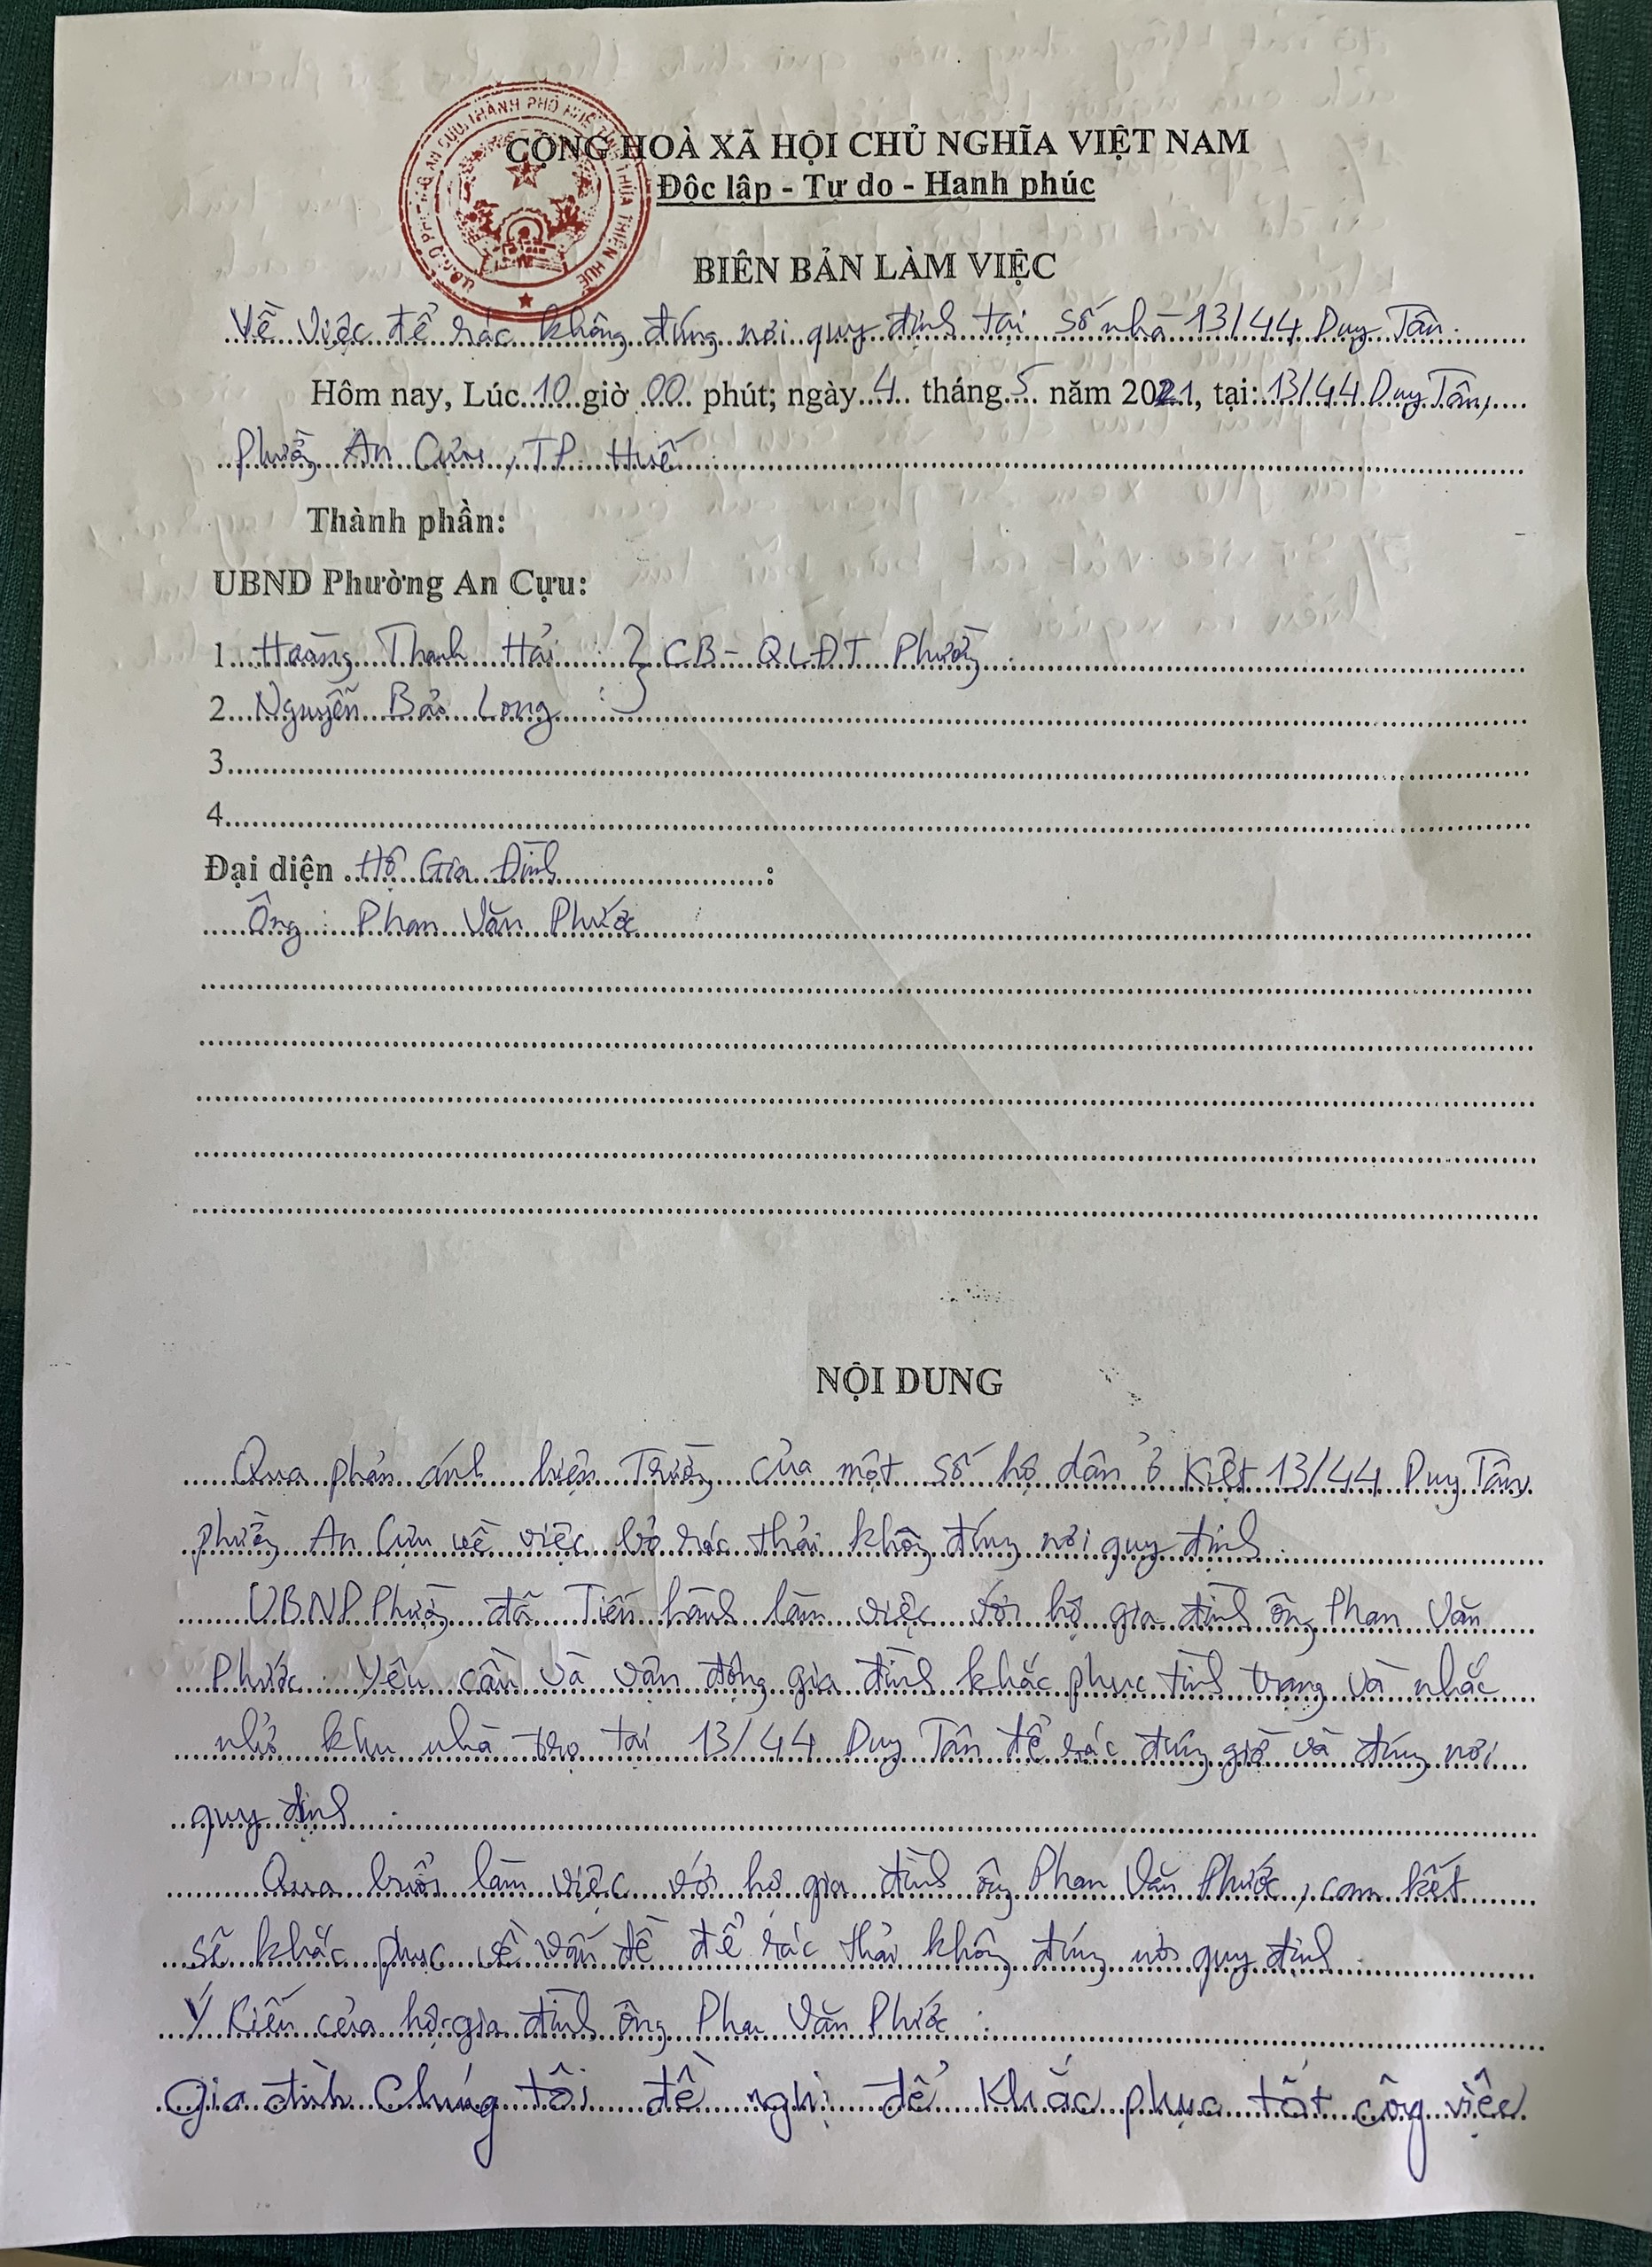 U.B.N.D PHƯỜNG AN CỰU THÀNH PHỐ HUẾ TỈNH THỪA THIÊN HUẾ
CỘNG HOÀ XÃ HỘI CHỦ NGHĨA VIỆT NAM
Độc lập - Tự do - Hạnh phúc
BIÊN BẢN LÀM VIỆC
Về việc để rác không đúng nơi quy định tại số nhà 13/44 Duy Tân.
Hôm nay, Lúc 10 giờ 00 phút; ngày 4 tháng 5 năm 2021, tại: 13/44 Duy Tân,
Phường An Cựu, TP. Huế.
Thành phần:
UBND Phường An Cựu:
1. Hoàng Thanh Hải : } CB - QLĐT Phường.
2. Nguyễn Bảo Long :
3
4
Đại diện Hộ Gia Đình :
Ông : Phan Văn Phước
NỘI DUNG
Qua phản ánh hiện Trường của một số hộ dân ở Kiệt 13/44 Duy Tân,
phường An Cựu về việc bỏ rác thải không đúng nơi quy định.
UBND Phường đã Tiến hành làm việc với hộ gia đình ông Phan Văn
Phước. Yêu cầu và vận động gia đình khắc phục tình trạng và nhắc
nhở khu nhà trọ tại 13/44 Duy Tân để rác đúng giờ và đúng nơi
quy định.
Qua buổi làm việc với hộ gia đình ông Phan Văn Phước, cam kết
sẽ khắc phục về vấn đề để rác thải không đúng nơi quy định.
Ý Kiến của hộ gia đình ông Phan Văn Phước :
Gia đình Chúng tôi đề nghị để Khắc phục tốt công việc